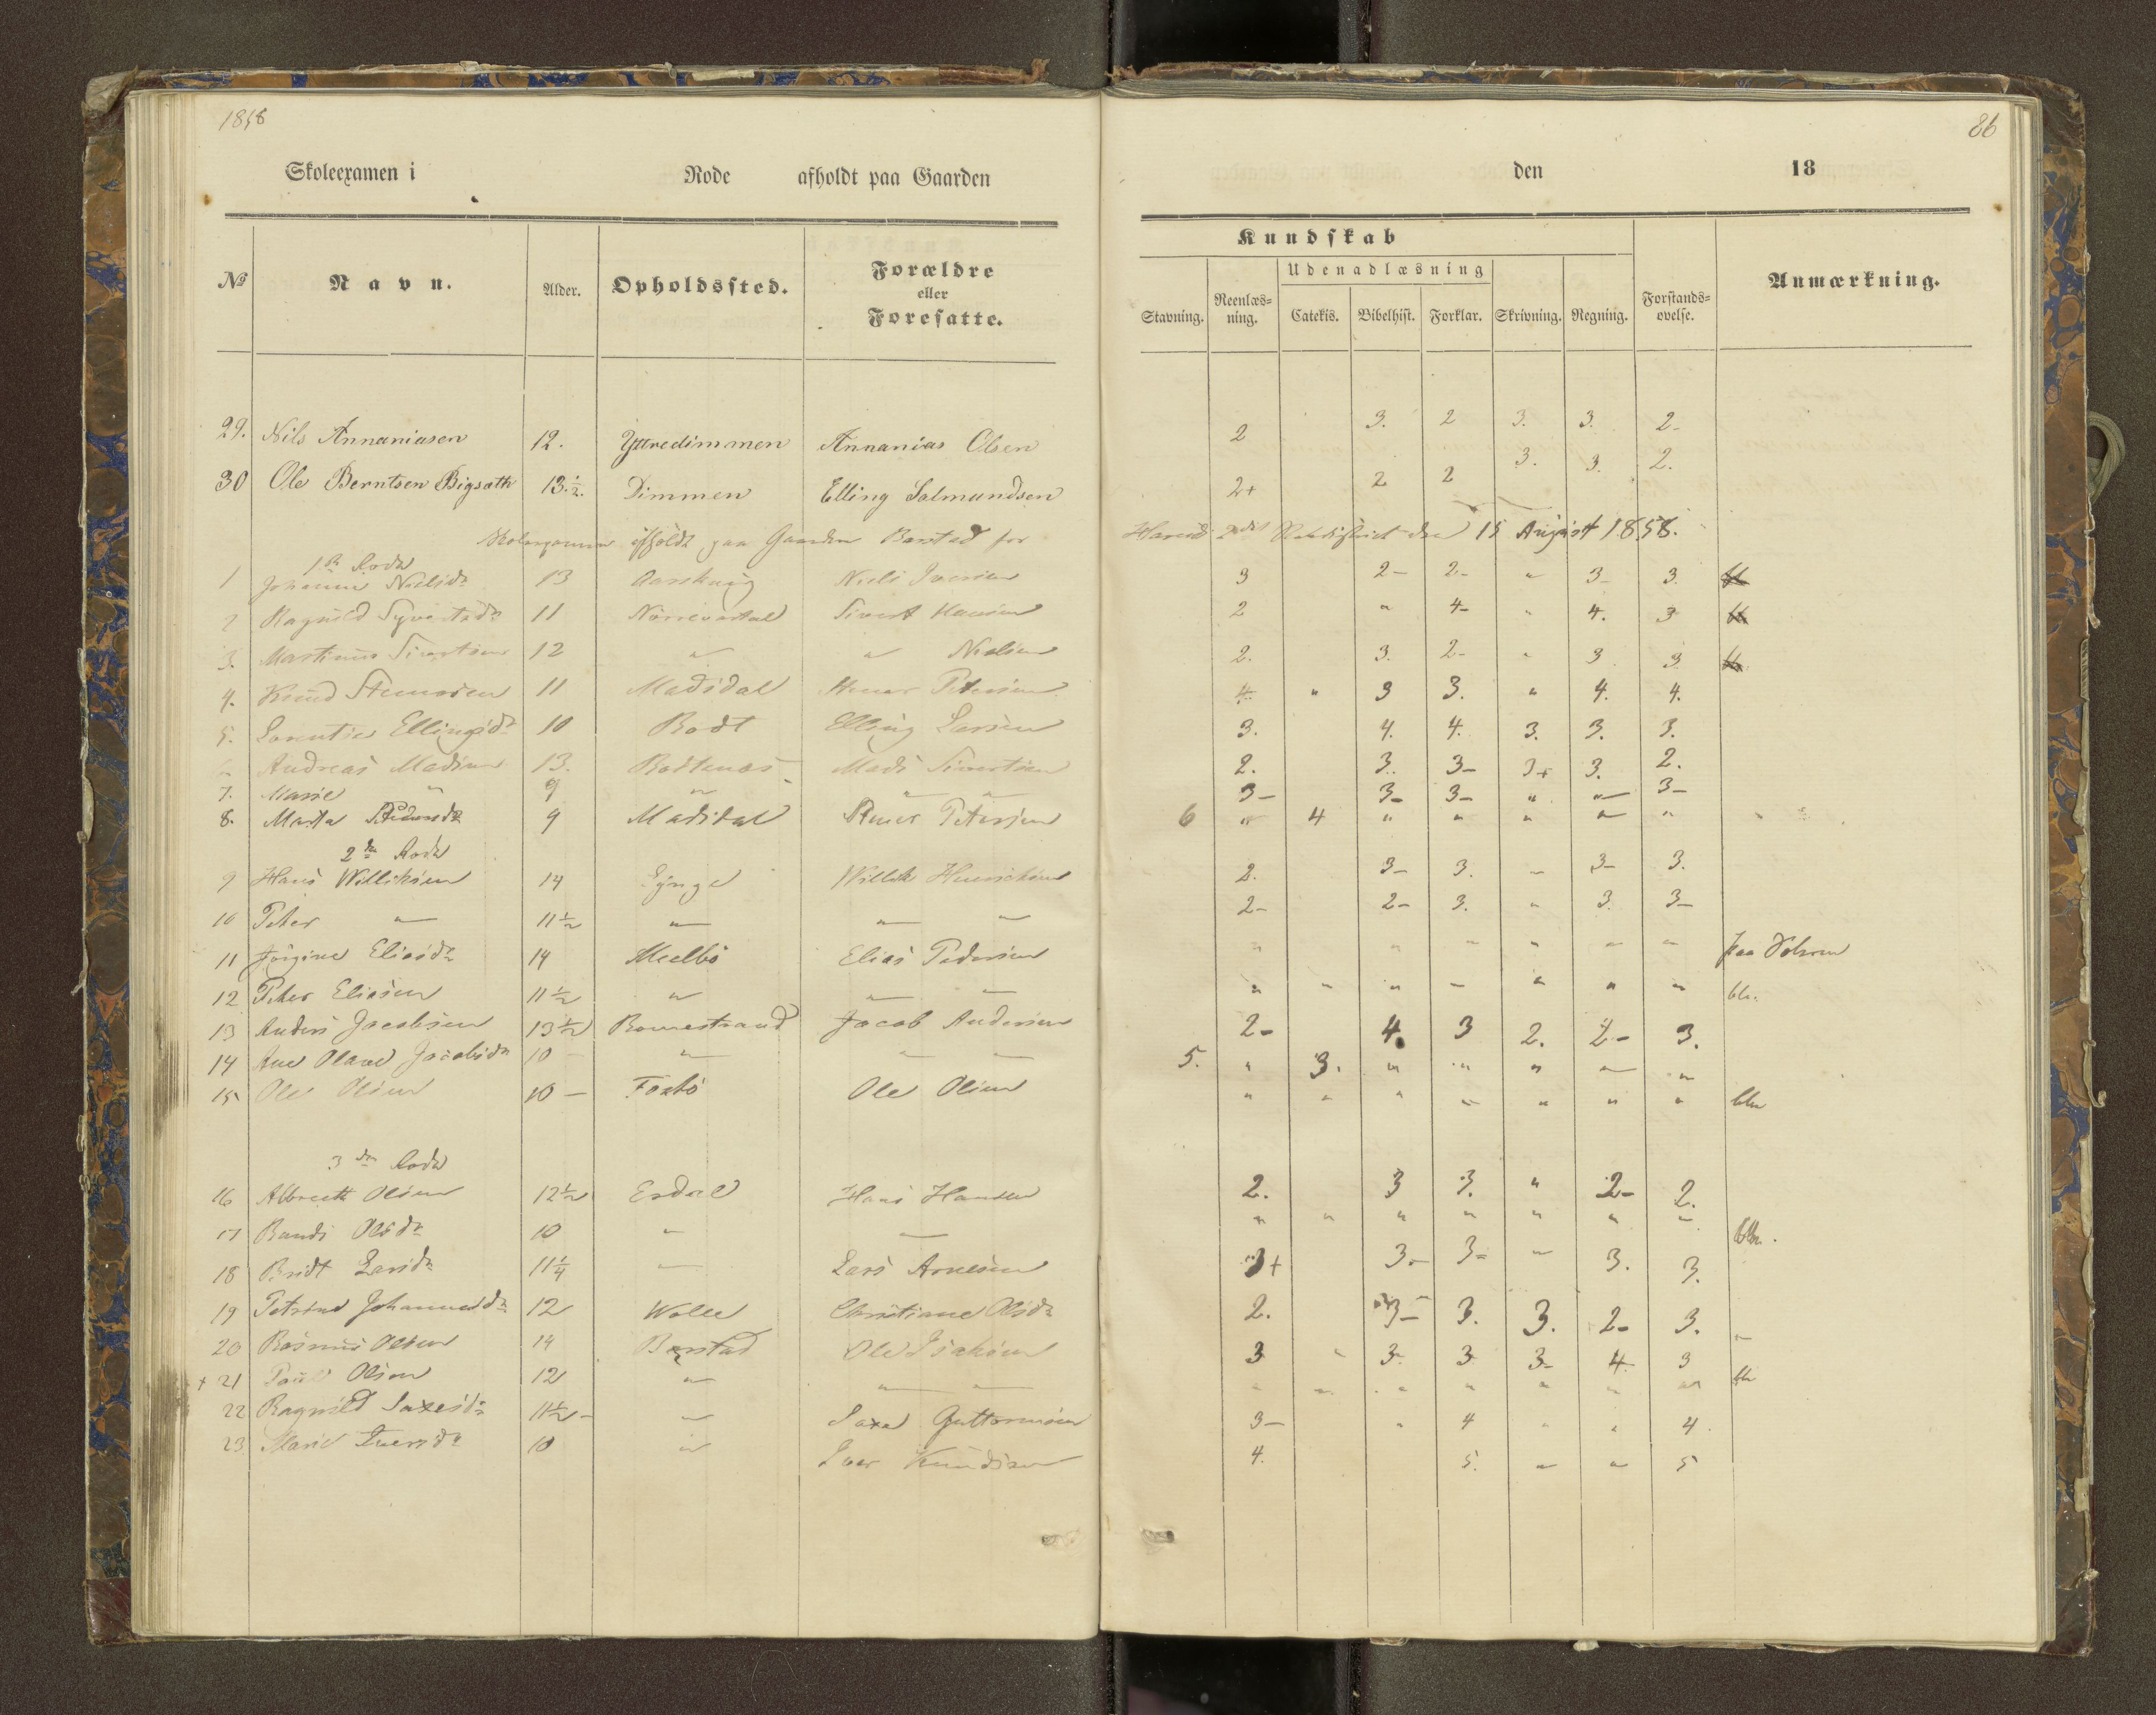 1858
86
Skoleexamen i Rode afholdt paa Gaarden den 18
№ Navn. Alder. Opholdssted. Forældre eller Foresatte. Kundskab Udenadlæsning Stavning. Reenlæsning. Catekis. Bibelhist. Forklar. Skrivning. Regning. Forstandsøvelse. Anmærkning.
29. Nils Annaniasen 12. Yttredimmen Annanias Olsen 2 3. 2 3. 3. 2-
30 Ole Berntsen Bigsæth 13.½. Dimmen Elling Salmundsen 2+ 2 2 3. 3. 2.
afholdt paa Gaarden Barstad for 15 August 1858.
1ste Rode
1 Nielsd. 13 Niels Iversen 3 2- 2- " 3- 3.
2 Ragnild 11 Sivert Hansen 2 " 4- " 4. 3
3. Martinus Sivertsen 12 " " Nielsen 2. 3. 2- " 3 3.
4. Knud 11 Madsdal Petersen 4. " 3 3. " 4. 4.
5. Ellingsd. 10 Bodt Elling Larsen 3. 4. 4. 3. 3. 3.
6. Andreas Madsen 13. Mads Sivertsen 2. 3. 3- 3+ 3. 2.
7. Marie " 9 " " " 3- 3- 3- " " 3-
8. Marta 9 Madsdal Petersen 6 " 4 " " " " "
2den Rode
9 Hans Williksen 14 Lynge Willik Henriksen 2. 3- 3. " 3- 3.
10 Peter " 11½ " " " 2- 2- 3. " 3. 3-
11 Jørgine Eliasd. 14 Meelbø Elias Pedersen " " " " " " paa
12 Peter Eliasen 11½ " " " " " " " " " "
13 Anders Jacobsen 13½ Bomestrand Jacob Andersen 2- 4. 3 2. 2- 3.
14 Ane Oland Jacobsd. 10 - " " " 5. " 3. " " " " "
15 Ole Olsen 10 - Ole Olsen " " " " " " "
3die Rode
16 Albrecth Olsen 12½ Esdal Hans Hansen 2. 3 3. " 2- 2.
17 Olsd. 10 " " " " " " " " "
18 Bridt Larsd. 11¼ " Lars Arnesen 3+ 3- 3- " 3. 3.
19 Johannesd. 12 Wolle Christiane Olsd. 2. 3- 3. 3. 2- 3.
20 Rasmus Olsen 14 Barstad Ole 3 " 3. 3 3- 4 3
+ 21 Paul Olsen 12 " " " " " " " " " "
22 Ragnild Saxesd. 11½ - " Saxe Guttormsen 3- " 4 " " 4.
23 Marie Iversd. 10 " Iver Knudsen 4. 5. " " 5